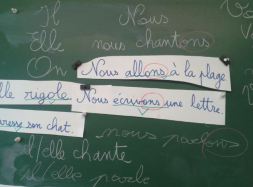 Il Nous
Elle nous chantons
On
Nous allons à la plage
lle rigole Nous écrivons une lettre.
resse son chat.
nous parlons
il/elle chante
il/elle parle